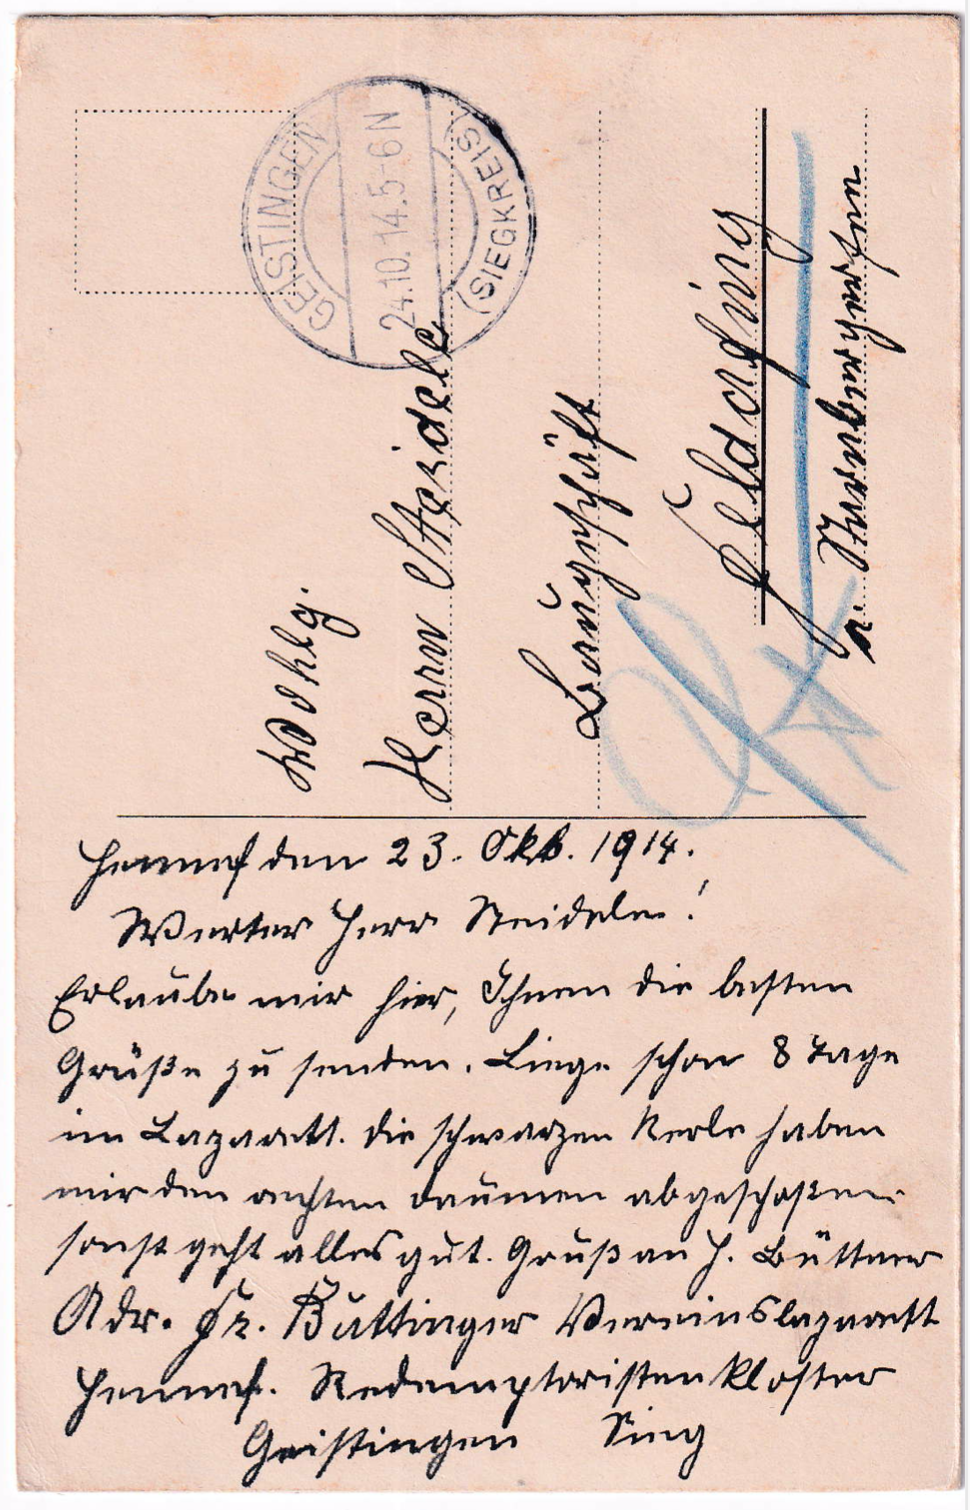 GEISTINGEN
24.10.14.5-6N
(SIEGKREIS)
Wohlg.
Herrn Steidele
Baugeschäft
Feldafing
a. Starnbergersee
Hennef den 23. Okb. 1914.
Werter Herr Steidele!
Erlaube mir hier, Ihnen die besten
Grüße zu senden. Liege schon 8 Tage
im Lazarett. die schwarzen Kerle haben
mir den rechten Daumen abgeschoßen
sonst geht alles gut. Gruß an H. Büttner
Adr. Fr. Buttinger Vereinslazarett
Hennef. Redemptoristenkloster
Geistingen Sieg